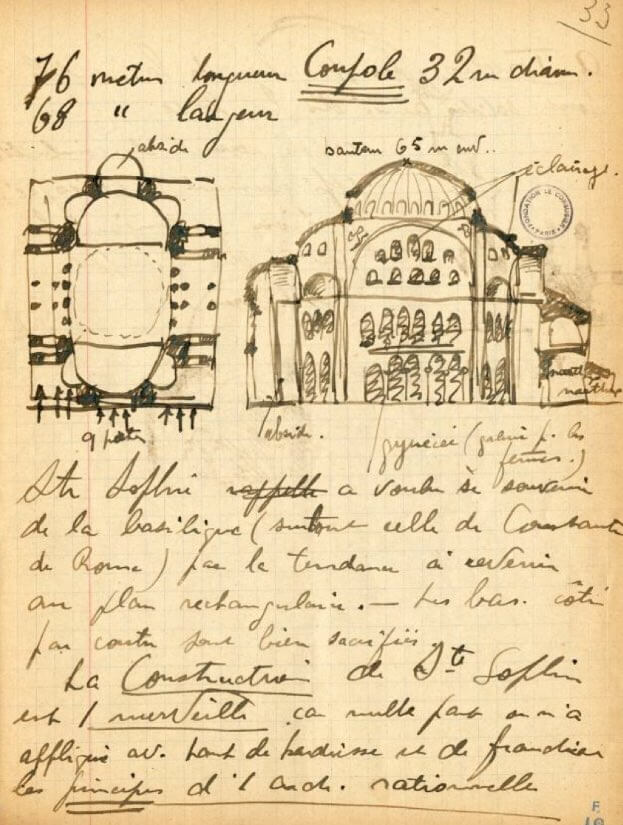 33
76 mètres longueur Coupole 32 m diam.
68 " largeur
abside
hauteur 65 m env..
éclairage.
FONDATION LE CORBUSIER
PARIS
narthex
9 portes
abside.
gynécée (galerie p. les
femmes.)
Ste Sophie rappelle a voulu se souvenir
de la basilique (surtout celle de Constantin
de Rome) par la tendance à revenir
au plan rectangulaire. — Les bas. côtés
par contre sont bien sacrifiés
La Construction de Ste Sophie
est 1 merveille car nulle part on n'a
appliqué av. tant de hardiesse et de franchise
les principes d'1 arch. rationnelle
F.